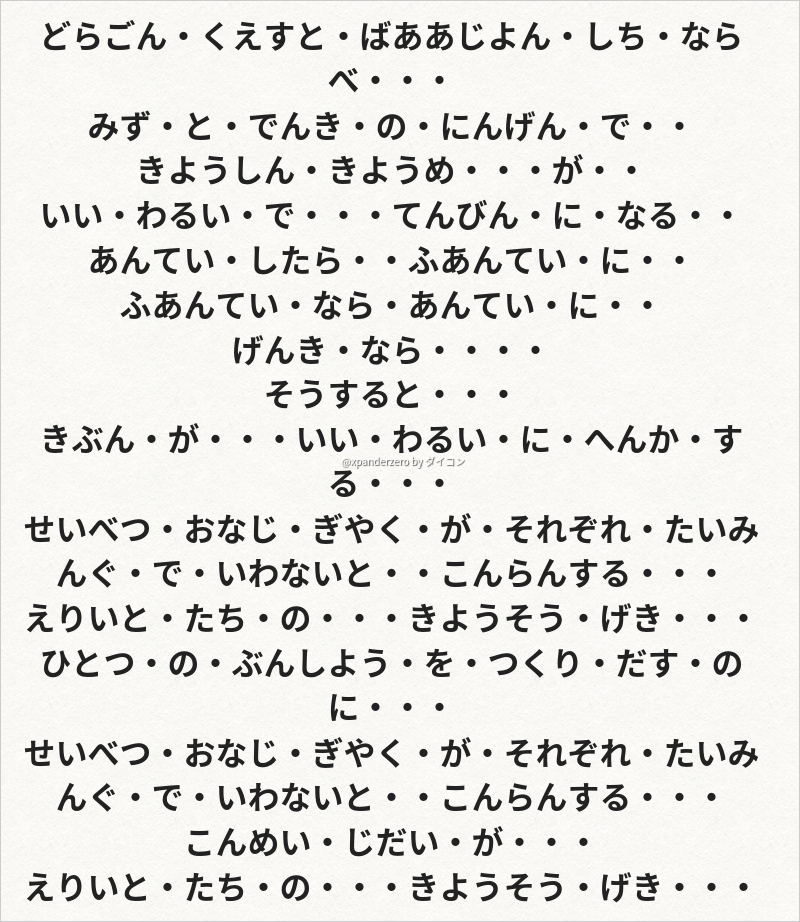 どらごん・くえすと・ばああじよん・しち・なら
べ・・・
みず・と・でんき・の・にんげん・で・・
きようしん・きようめ・・・が・・
いい・わるい・で・・・てんびん・に・なる・・
あんてい・したら・・ふあんてい・に・・
ふあんてい・なら・あんてい・に・・
げんき・なら・・・・
そうすると・・・
きぶん・が・・・いい・わるい・に・へんか・す
@xpanderzero by ダイコン
る・・・
せいべつ・おなじ・ぎやく・が・それぞれ・たいみ
んぐ・で・いわないと・・こんらんする・・・
えりいと・たち・の・・・きようそう・げき・・・
ひとつ・の・ぶんしよう・を・つくり・だす・の
に・・・
せいべつ・おなじ・ぎやく・が・それぞれ・たいみ
んぐ・で・いわないと・・こんらんする・・・
こんめい・じだい・が・・・
えりいと・たち・の・・・きようそう・げき・・・